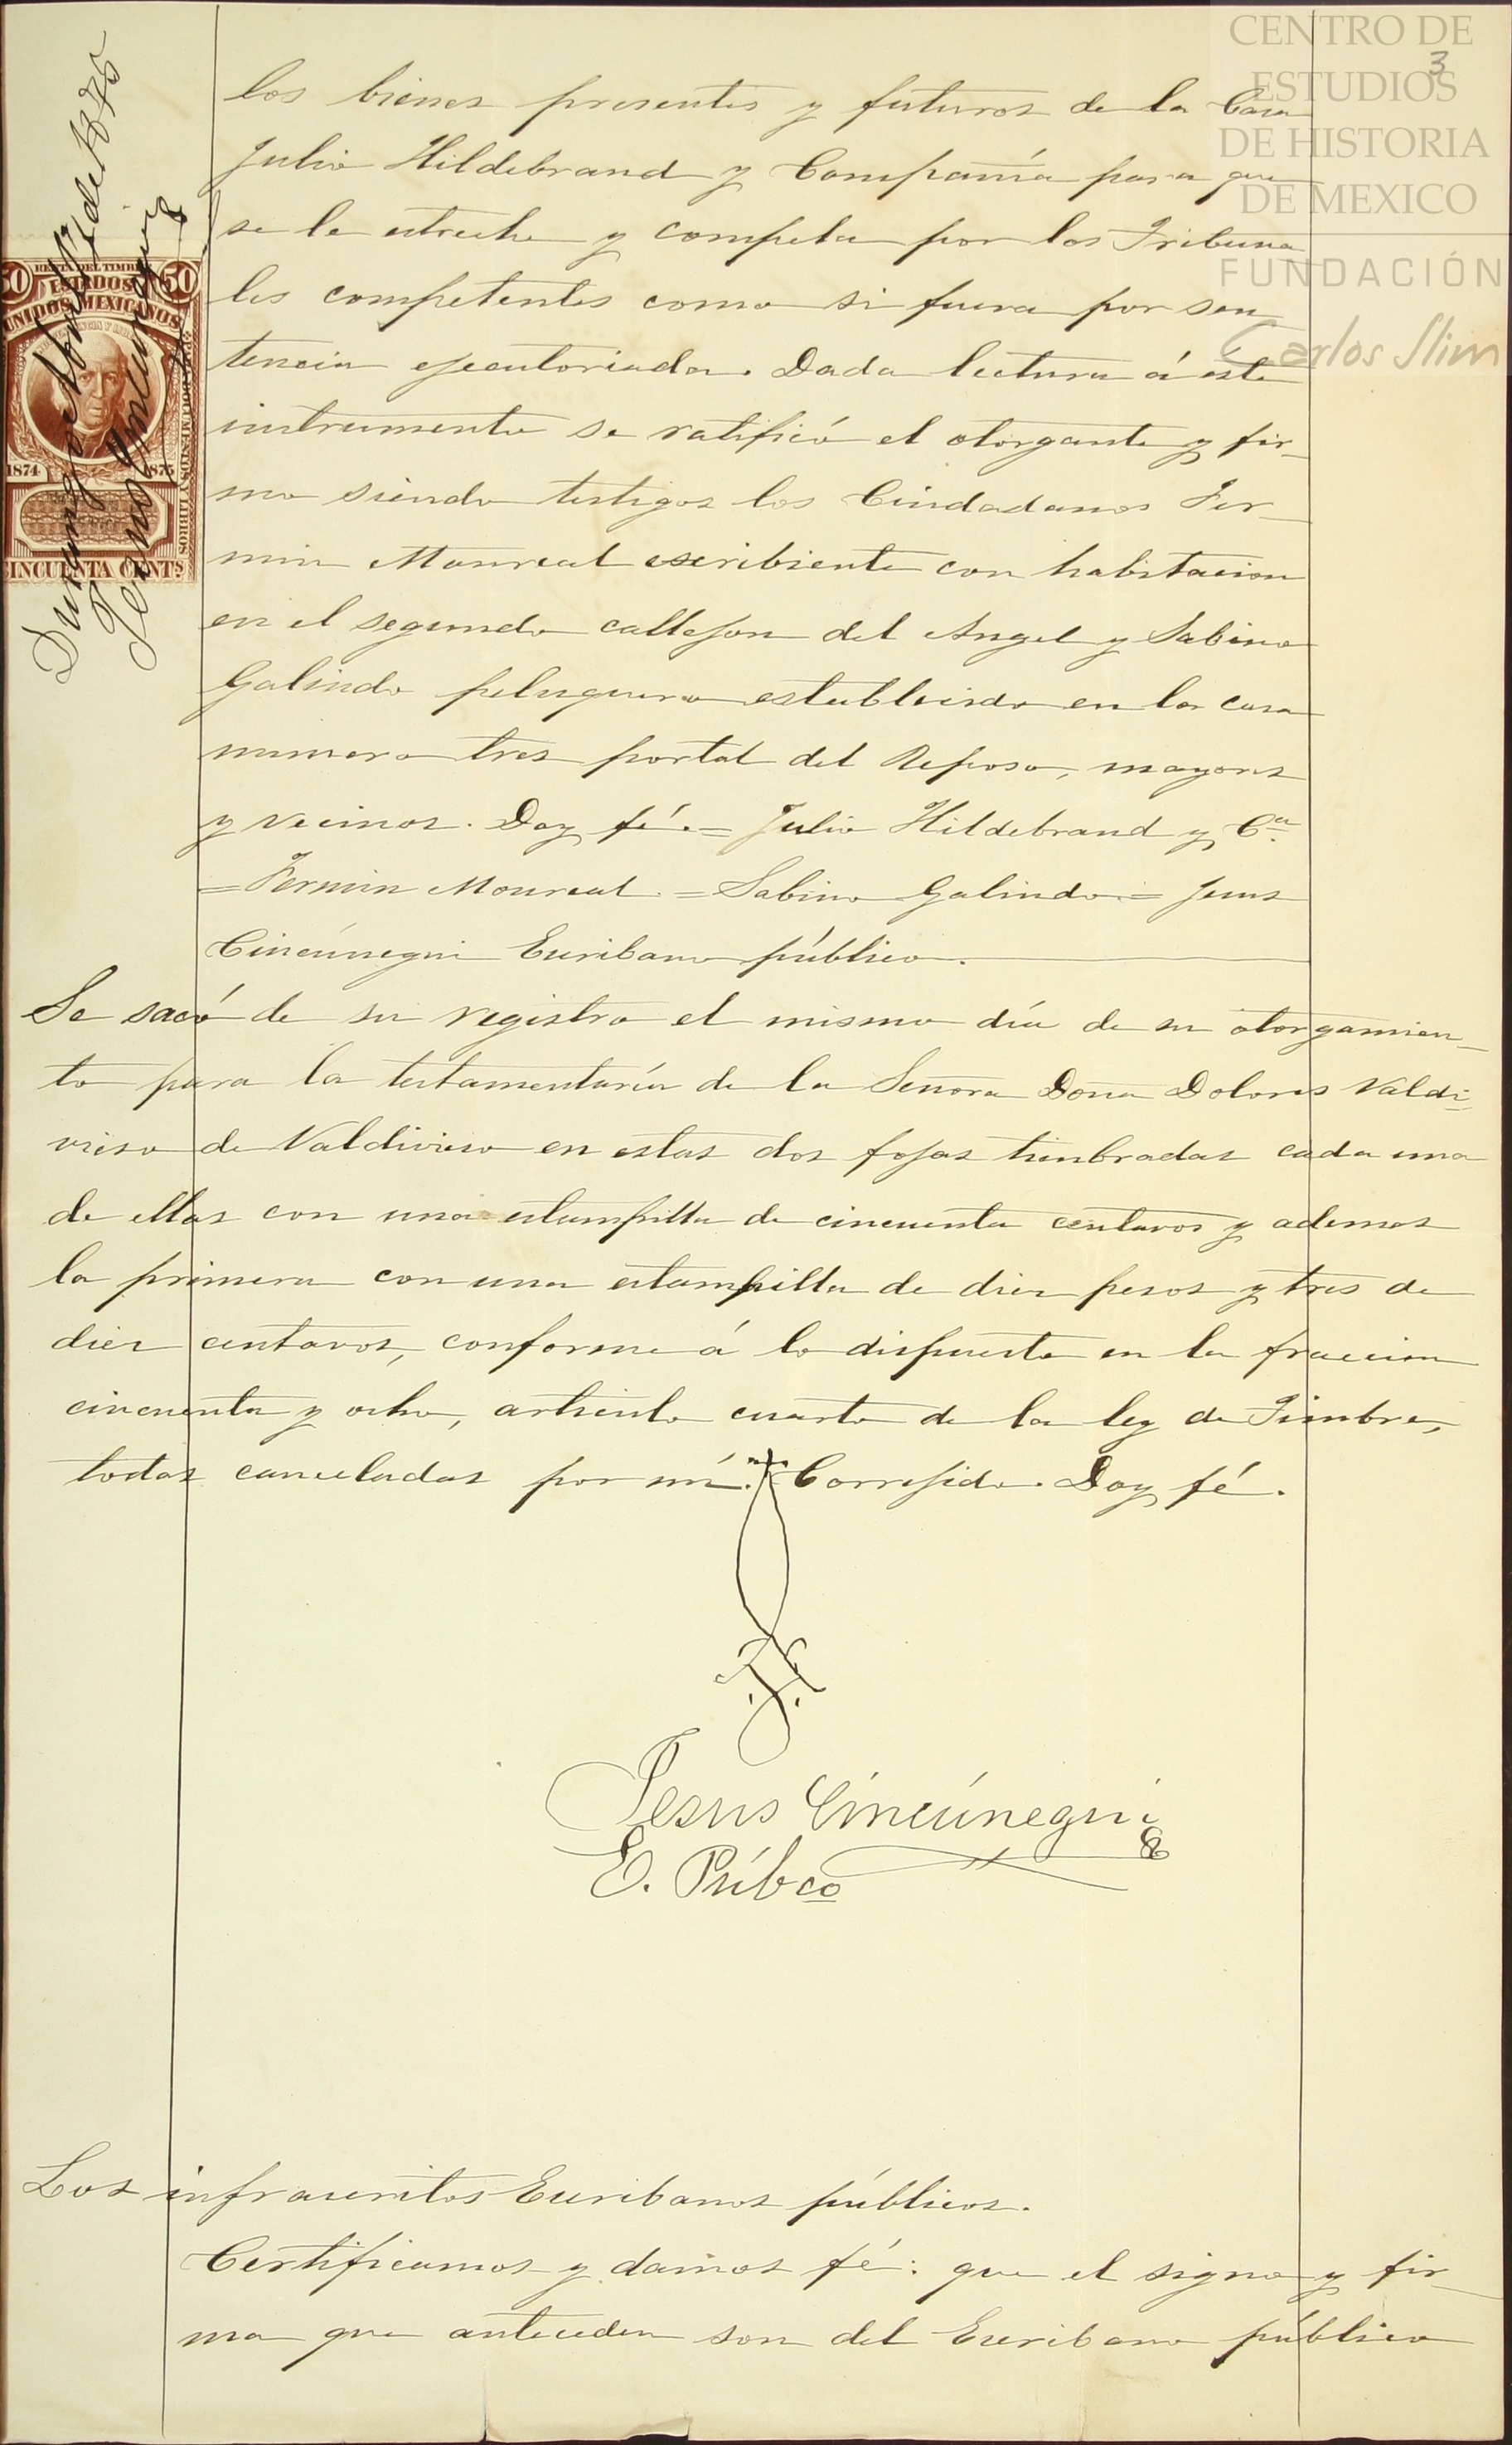 CENTRO DE
ESTUDIOS
DE HISTORIA
DE MEXICO
FUNDACIÓN
Carlos Slim
3
Durango Abril 17 de 1875
Jesus Cincúnegui
RENTA DEL TIMBRE
50 ESTADOS 50
UNIDOS MEXICANOS
1874 1875
CINCUENTA CENTS
los bienes presentes y futuros de la Casa
Julio Hildebrand y Compañía para que
se le estreche y compela por los Tribuna
les competentes como si fuera por sen
tencia ejecutoriada. Dada lectura á este
instrumento se ratificó el otorgante y fir_
mo siendo testigos los Ciudadanos Fer_
min Monreal escribiente con habitacion
en el segundo callejon del Angel y Sabino
Galindo peluquero establecido en la casa
numero tres portal del Reposo, mayores
y vecinos. Doy fé.= Julio Hildebrand y Ca.
=Fermin Monreal.=Sabino Galindo.= Jesus
Cincúnegui Escribano público.
Se sacó de su registro el mismo día de su otorgamien_
to para la testamentaría de la Señora Doña Dolores Valdi_
vieso de Valdivieso en estas dos fojas timbradas cada una
de ellas con una estampilla de cincuenta centavos y ademas
la primera con una estampilla de diez pesos y tres de
diez centavos, conforme á lo dispuesto en la fraccion
cincuenta y ocho, artículo cuarto de la ley de Timbre,
todas canceladas por mí. Corregido. Doy fé.
Jesus Cincúnegui
E. Púbco
Los infrascritos Escribanos públicos.
Certificamos y damos fé: que el signo y fir_
ma que anteceden son del Escribano público